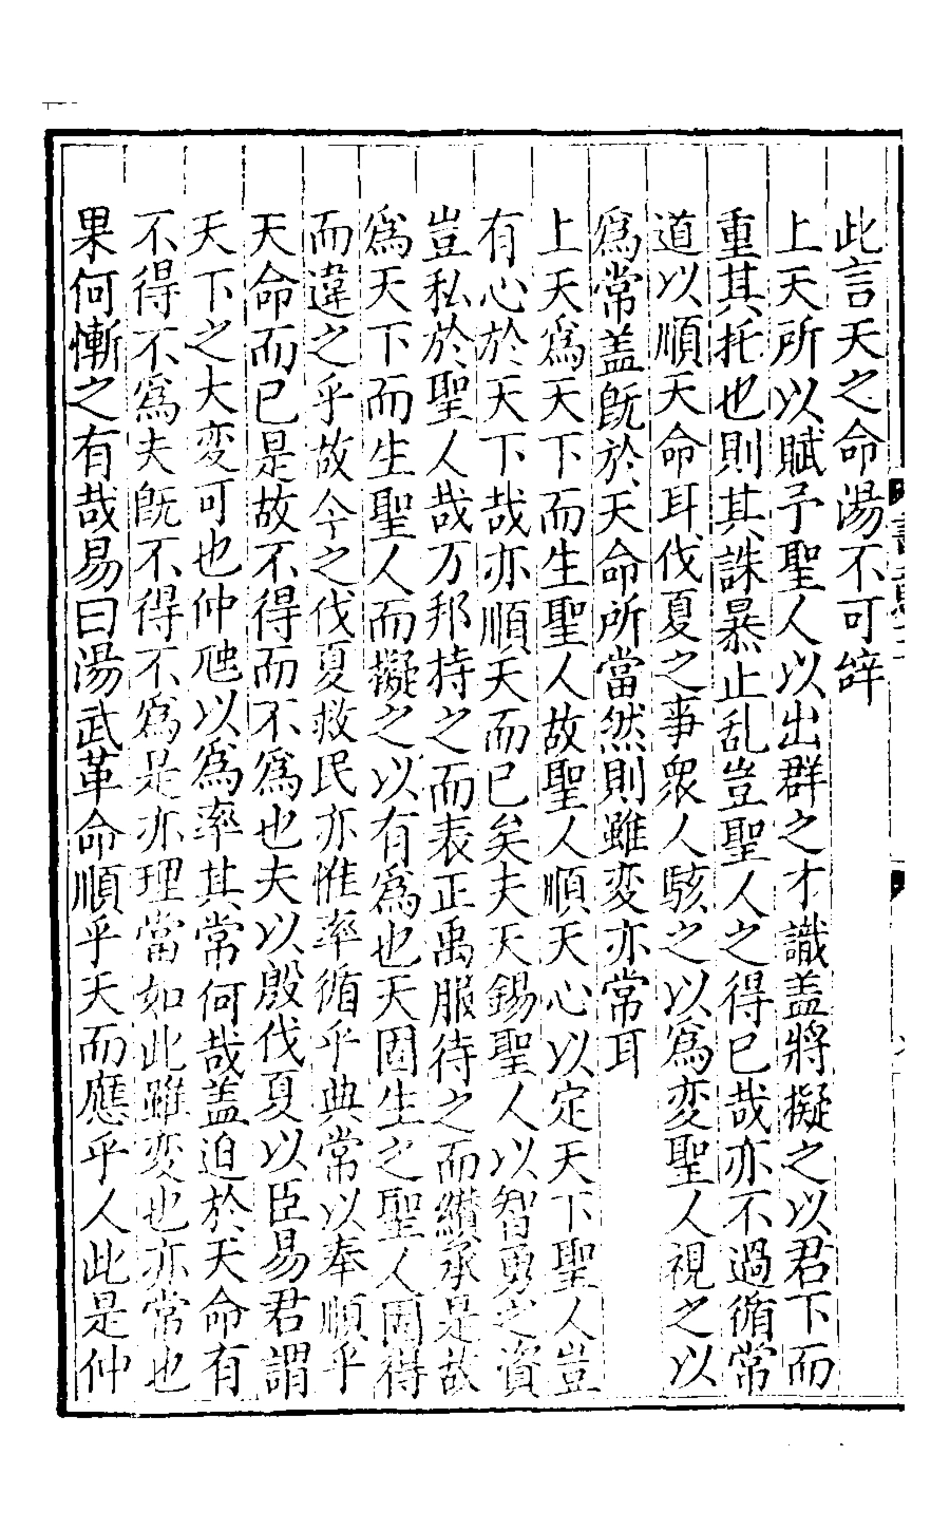 此言天之命湯不可辝
上天所以賦予聖人以出群之才識盖將擬之以君下而
重其托也則其誅暴止乱豈聖人之得已哉亦不過循常
道以順天命耳伐夏之事衆人駭之以為変聖人視之以
為常盖既於天命所當然則雖変亦常耳
上天為天下而生聖人故聖人順天心以定天下聖人豈
有心於天下哉亦順天而已矣夫天錫聖人以智勇之資
豈私於聖人哉万邦持之而表正禹服待之而纉承是故
為天下而生聖人而擬之以有為也天固生之聖人固得
而違之乎故今之伐夏救民亦惟率循乎典常以奉順乎
天命而已是故不得而不為也夫以殷伐夏以臣易君謂
天下之大変可也仲虺以為率其常何哉盖迫於天命有
不得不為夫既不得不為是亦理當如此雖変也亦常也
果何慚之有哉易曰湯武革命順乎天而應乎人此是仲